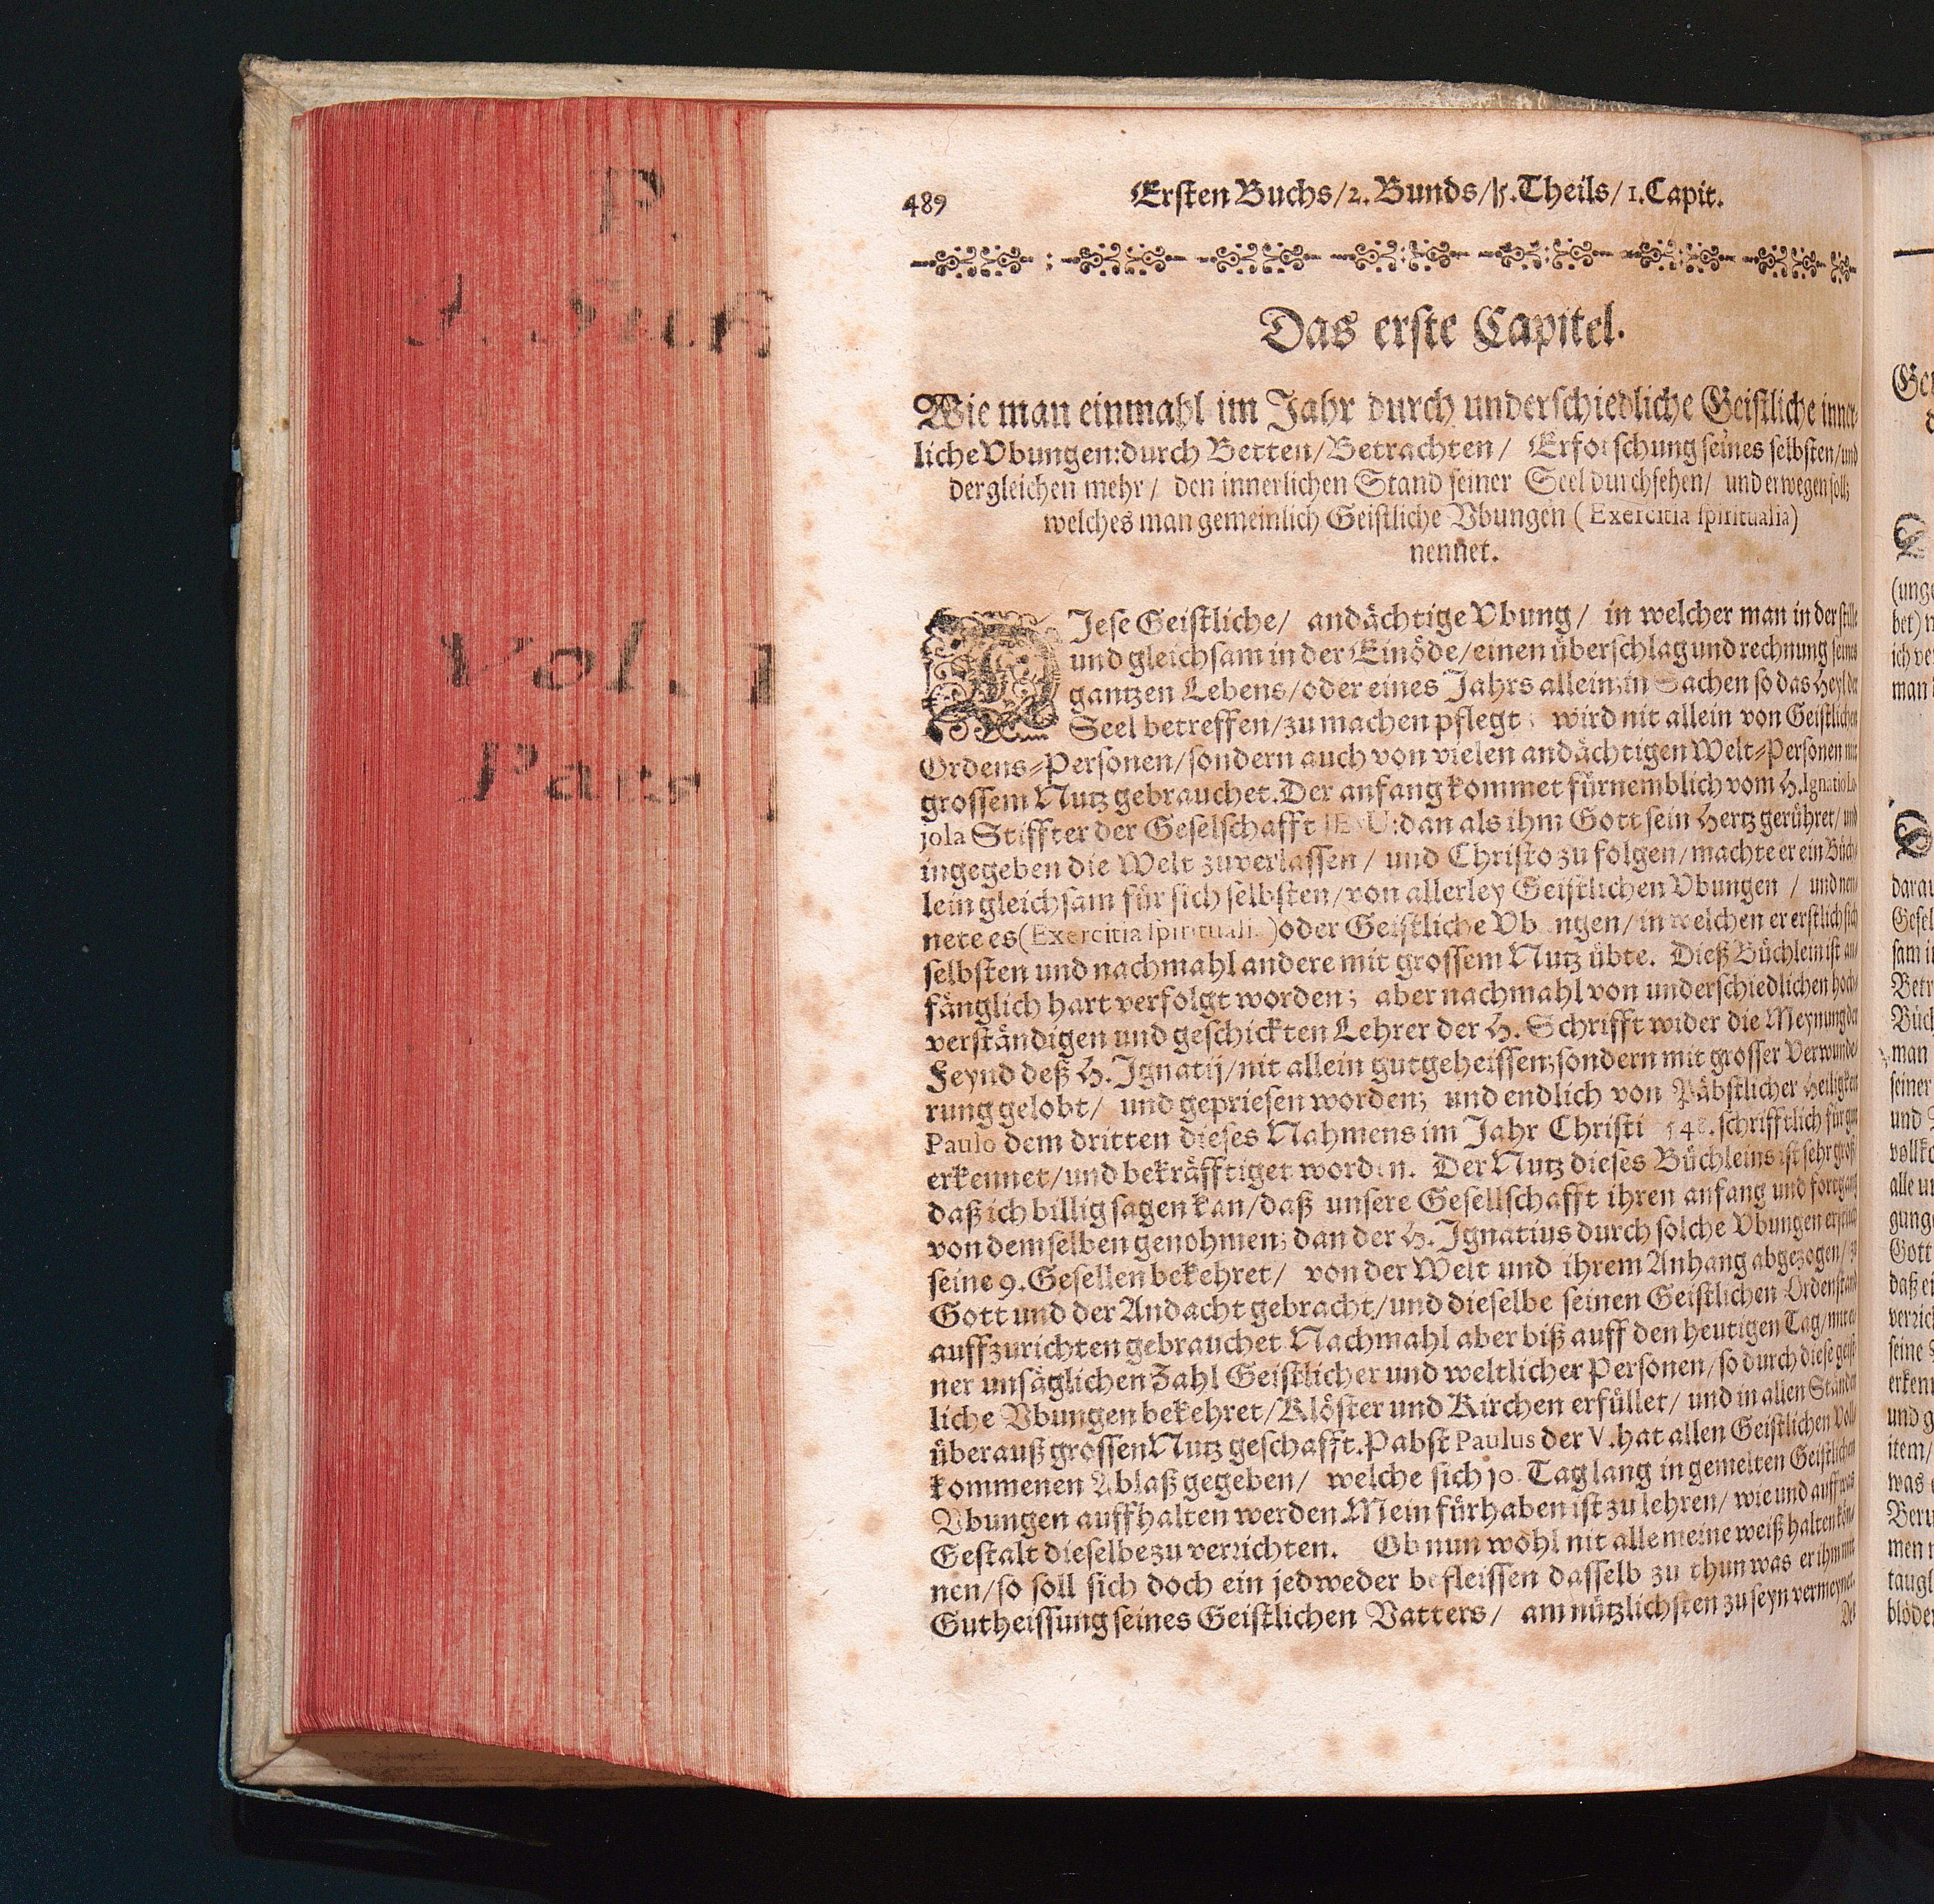 P.
J. Suf
Vol. I
Pars
489
Ersten Buchs/2. Bunds/5.Theils/1.Capit.
Das erste Capitel.
Wie man einmahl im Jahr durch underschiedliche Geistliche inner-
liche Vbungen: durch Betten/Betrachten/ Erforschung seines selbsten/und
dergleichen mehr/ den innerlichen Stand seiner Seel durchsehen/ und erwegen soll;
welches man gemeinlich Geistliche Vbungen (Exercitia spiritualia)
nennet.
DIese Geistliche/ andächtige Vbung/ in welcher man in der stille
und gleichsam in der Einöde/einen überschlag und rechnung seines
gantzen Lebens/oder eines Jahrs allein;in Sachen so das Heyl der
Seel betreffen/zu machen pflegt; wird nit allein von Geistlichen
Ordens-Personen/sondern auch von vielen andächtigen Welt-Personen mit
grossem Nutz gebrauchet. Der anfang kommet fürnemblich vom H. Ignatio Lo-
jola Stiffter der Geselschafft JESU: dan als ihm Gott sein Hertz gerühret/ und
ingegeben die Welt zuverlassen/ und Christo zu folgen/machte er ein Büch-
lein gleichsam für sich selbsten/von allerley Geistlichen Vbungen / und nen-
nete es (Exercitia spiritualia) oder Geistliche Vbungen/in welchen er erstlich sich
selbsten und nachmahl andere mit grossem Nutz übte. Dieß Büchlein ist an-
fänglich hart verfolgt worden; aber nachmahl von underschiedlichen hoch-
verständigen und geschickten Lehrer der H. Schrifft wider die Meynung der
Feynd deß H. Ignatij/nit allein gutgeheissen;sondern mit grosser Verwunde-
rung gelobt/ und gepriesen worden; und endlich von Päbstlicher Heiligkeit
Paulo dem dritten dieses Nahmens im Jahr Christi schrifftlich für gut
erkennet/und bekräfftiget worden. Der Nutz dieses Büchleins ist sehr groß
daß ich billig sagen kan/daß unsere Gesellschafft ihren anfang und fortgang
von demselben genohmen; dan der H. Ignatius durch solche Vbungen erstlich
seine 9. Gesellen bekehret/ von der Welt und ihrem Anhang abgezogen/ zu
Gott und der Andacht gebracht/und dieselbe seinen Geistlichen Ordenstand
auffzurichten gebrauchet. Nachmahl aber biß auff den heutigen Tag/mit ei-
ner unsäglichen Zahl Geistlicher und weltlicher Personen/so durch diese geist-
liche Vbungen bekehret/Klöster und Kirchen erfüllet/ und in allen Ständen
überauß grossen Nutz geschafft. Pabst Paulus der V. hat allen Geistlichen Voll-
kommenen Ablaß gegeben/ welche sich 10. Tag lang in gemelten Geistlichen
Vbungen auffhalten werden. Mein fürhaben ist zu lehren/ wie und auff was
Gestalt dieselbe zu verrichten. Ob nun wohl nit alle meine weiß halten kön-
nen/so soll sich doch ein jedweder befleissen dasselb zu thun was er ihm mit
Gutheissung seines Geistlichen Vatters/ am nützlichsten zu seyn vermeynet.